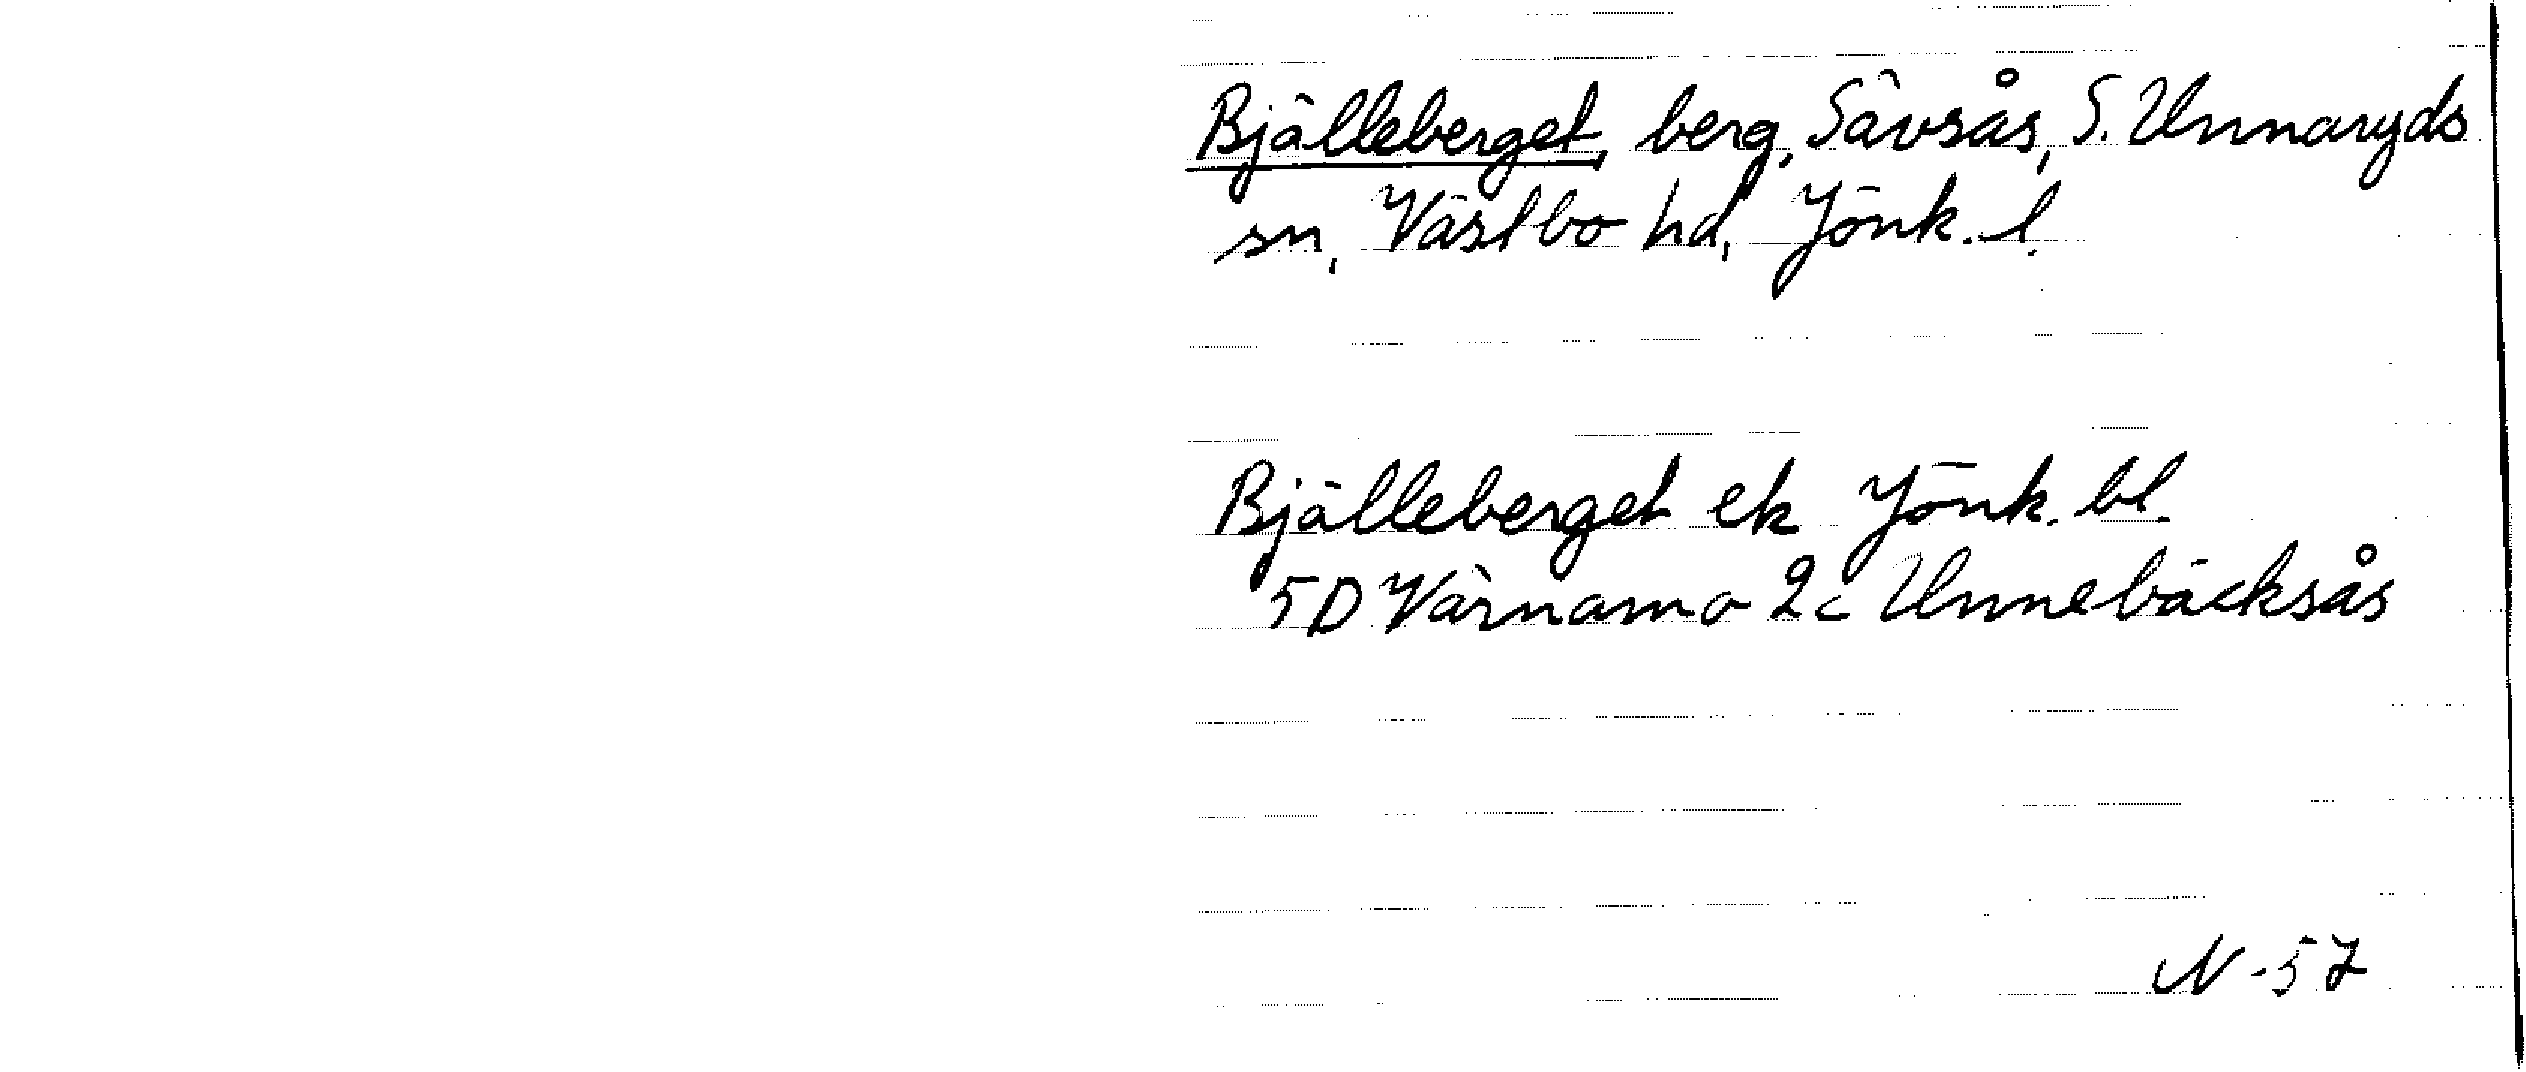 Bjälleberget, berg, Sävsås, S. Unnaryds
sn, Västbo hd, Jönk. l.
Bjälleberget ek Jönk. bl.
5D Värnamo 2c Unnebäcksås
N-57